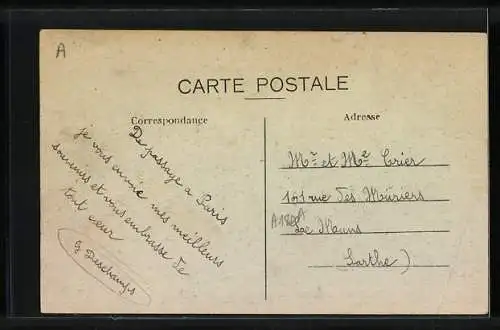 A
CARTE POSTALE
Correspondance
Adresse
De passage a Paris
je vous envoie mes meilleurs
souvenirs et vous embrasse de
tout cœur
G Deschamps
Mr et Me Crier
101 rue des Mûriers
Le Mans
Sarthe)